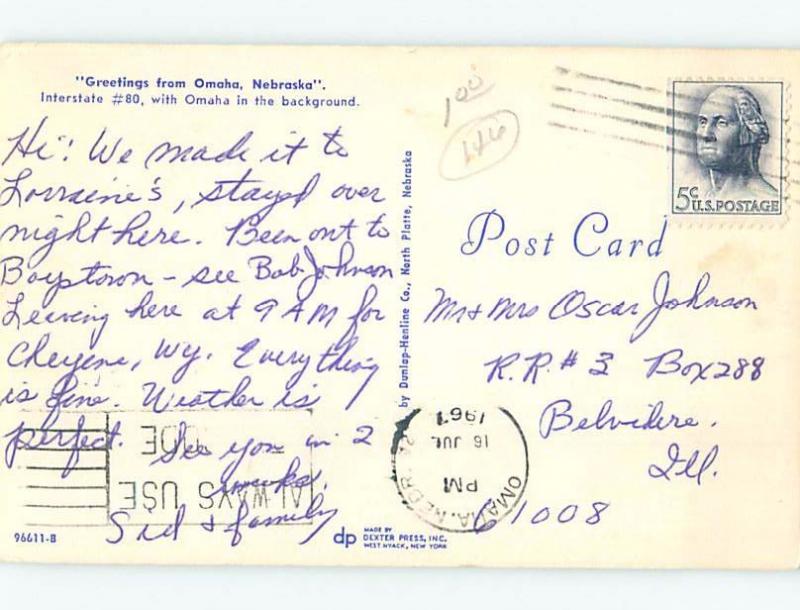 "Greetings from Omaha, Nebraska".
Interstate #80, with Omaha in the background.
Hi! We made it to
Lorraine's, stayed over
night here. Been out to
Boystown - see Bob Johnson
Leaving here at 9 AM for
Cheyene, Wy. Everything
is fine. Weather is
perfect. See you in 2
weeks.
Sid & family
96611-B
by Dunlap-Henline Co., North Platte, Nebraska
dp MADE BY
DEXTER PRESS, INC.
WEST NYACK, NEW YORK
100
146
5¢
U.S.POSTAGE
Post Card
Mr + Mrs Oscar Johnson
R.R. # 3 Box 288
Belvidere.
Ill.
61008
OMAHA, NEBR
PM
16 JUL
196
ALWAYS USE